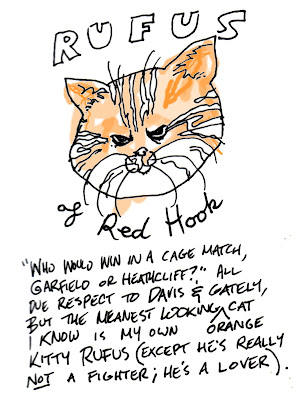 RUFUS
of
Red Hook
"WHO WOULD WIN IN A CAGE MATCH,
GARFIELD OR HEATHCLIFF?" ALL
DUE RESPECT TO DAVIS & GATELY,
BUT THE MEANEST LOOKING CAT
I KNOW IS MY OWN ORANGE
KITTY RUFUS (EXCEPT HE'S REALLY
NOT A FIGHTER; HE'S A LOVER).